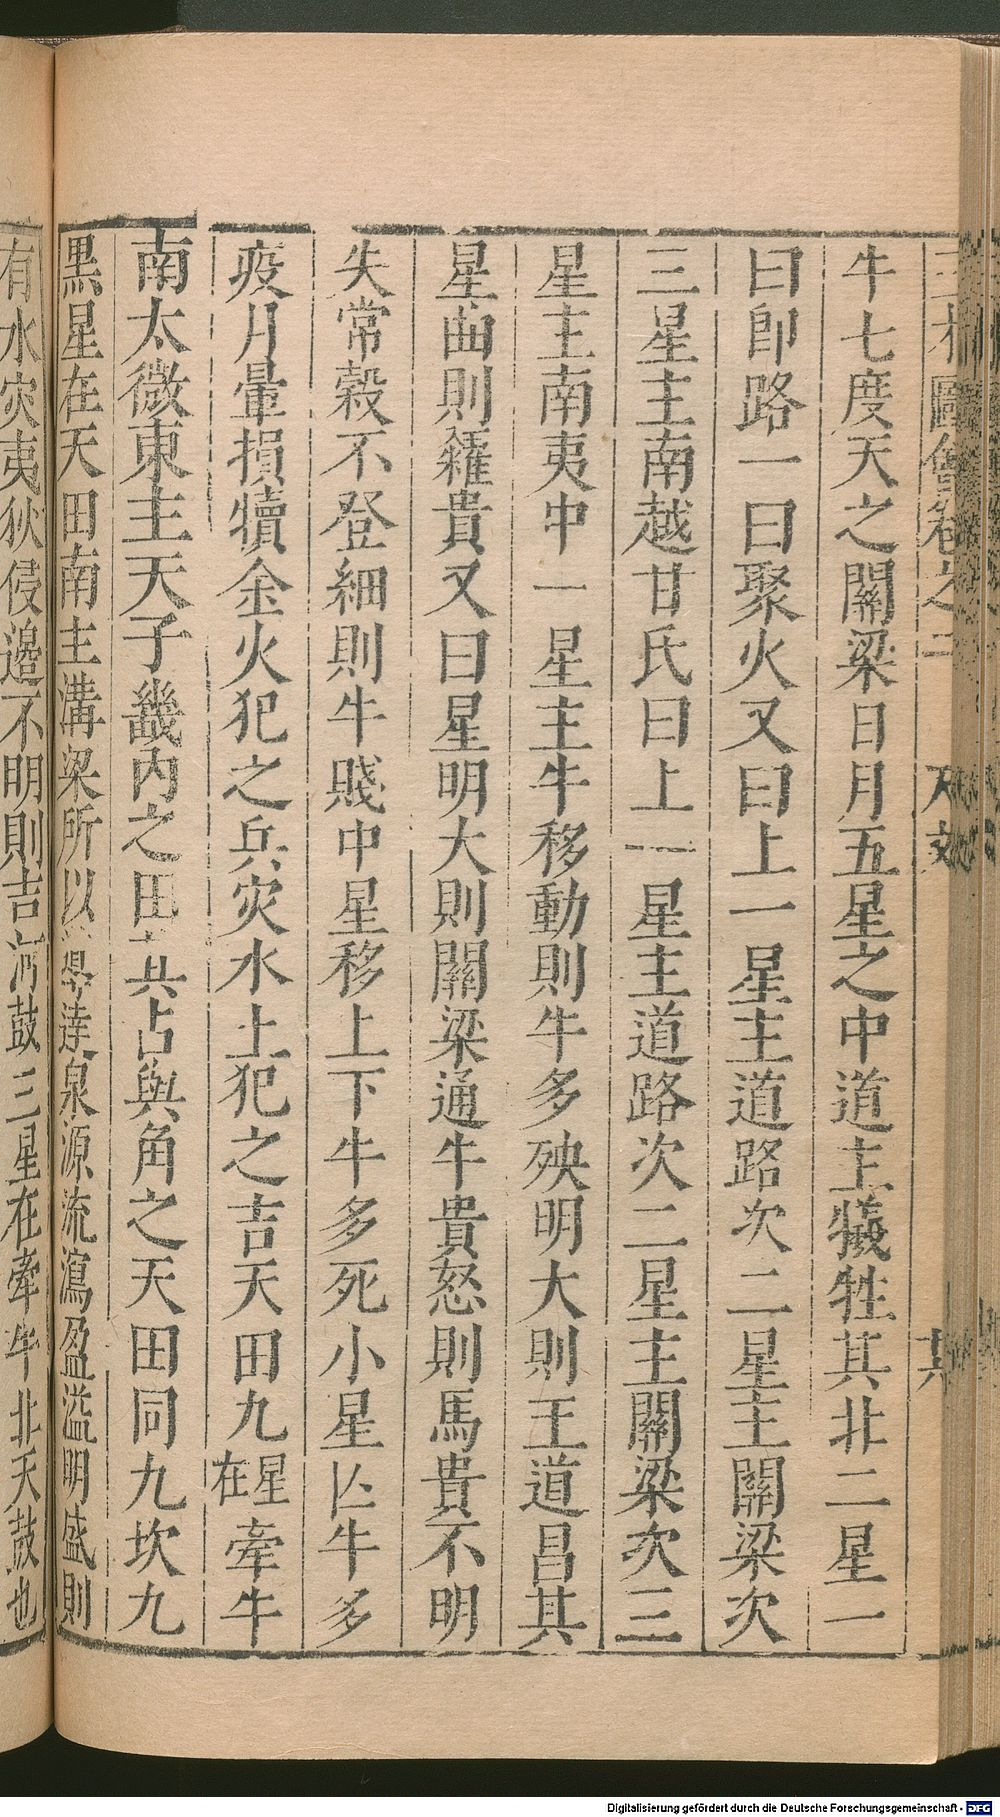 三才圖會卷之二 天文 廿六
牛七度天之關梁日月五星之中道主犧牲其北二星一
曰卽路一曰聚火又曰上一星主道路次二星主關梁次
三星主南越甘氏曰上一星主道路次二星主關梁次三
星主南夷中一星主牛移動則牛多殃明大則王道昌其
星曲則糴貴又曰星明大則關梁通牛貴怒則馬貴不明
失常穀不登細則牛賤中星移上下牛多死小星亡牛多
疫月暈損犢金火犯之兵灾水土犯之吉天田九星在牽牛
南太微東主天子畿內之田其占與角之天田同九坎九
黑星在天田南主溝渠所以導達泉源流瀉盈溢明盛則
有水灾夷狄侵邊不明則吉河鼓三星在牽牛北天鼓也
Digitalisierung gefördert durch die Deutsche Forschungsgemeinschaft - DFG